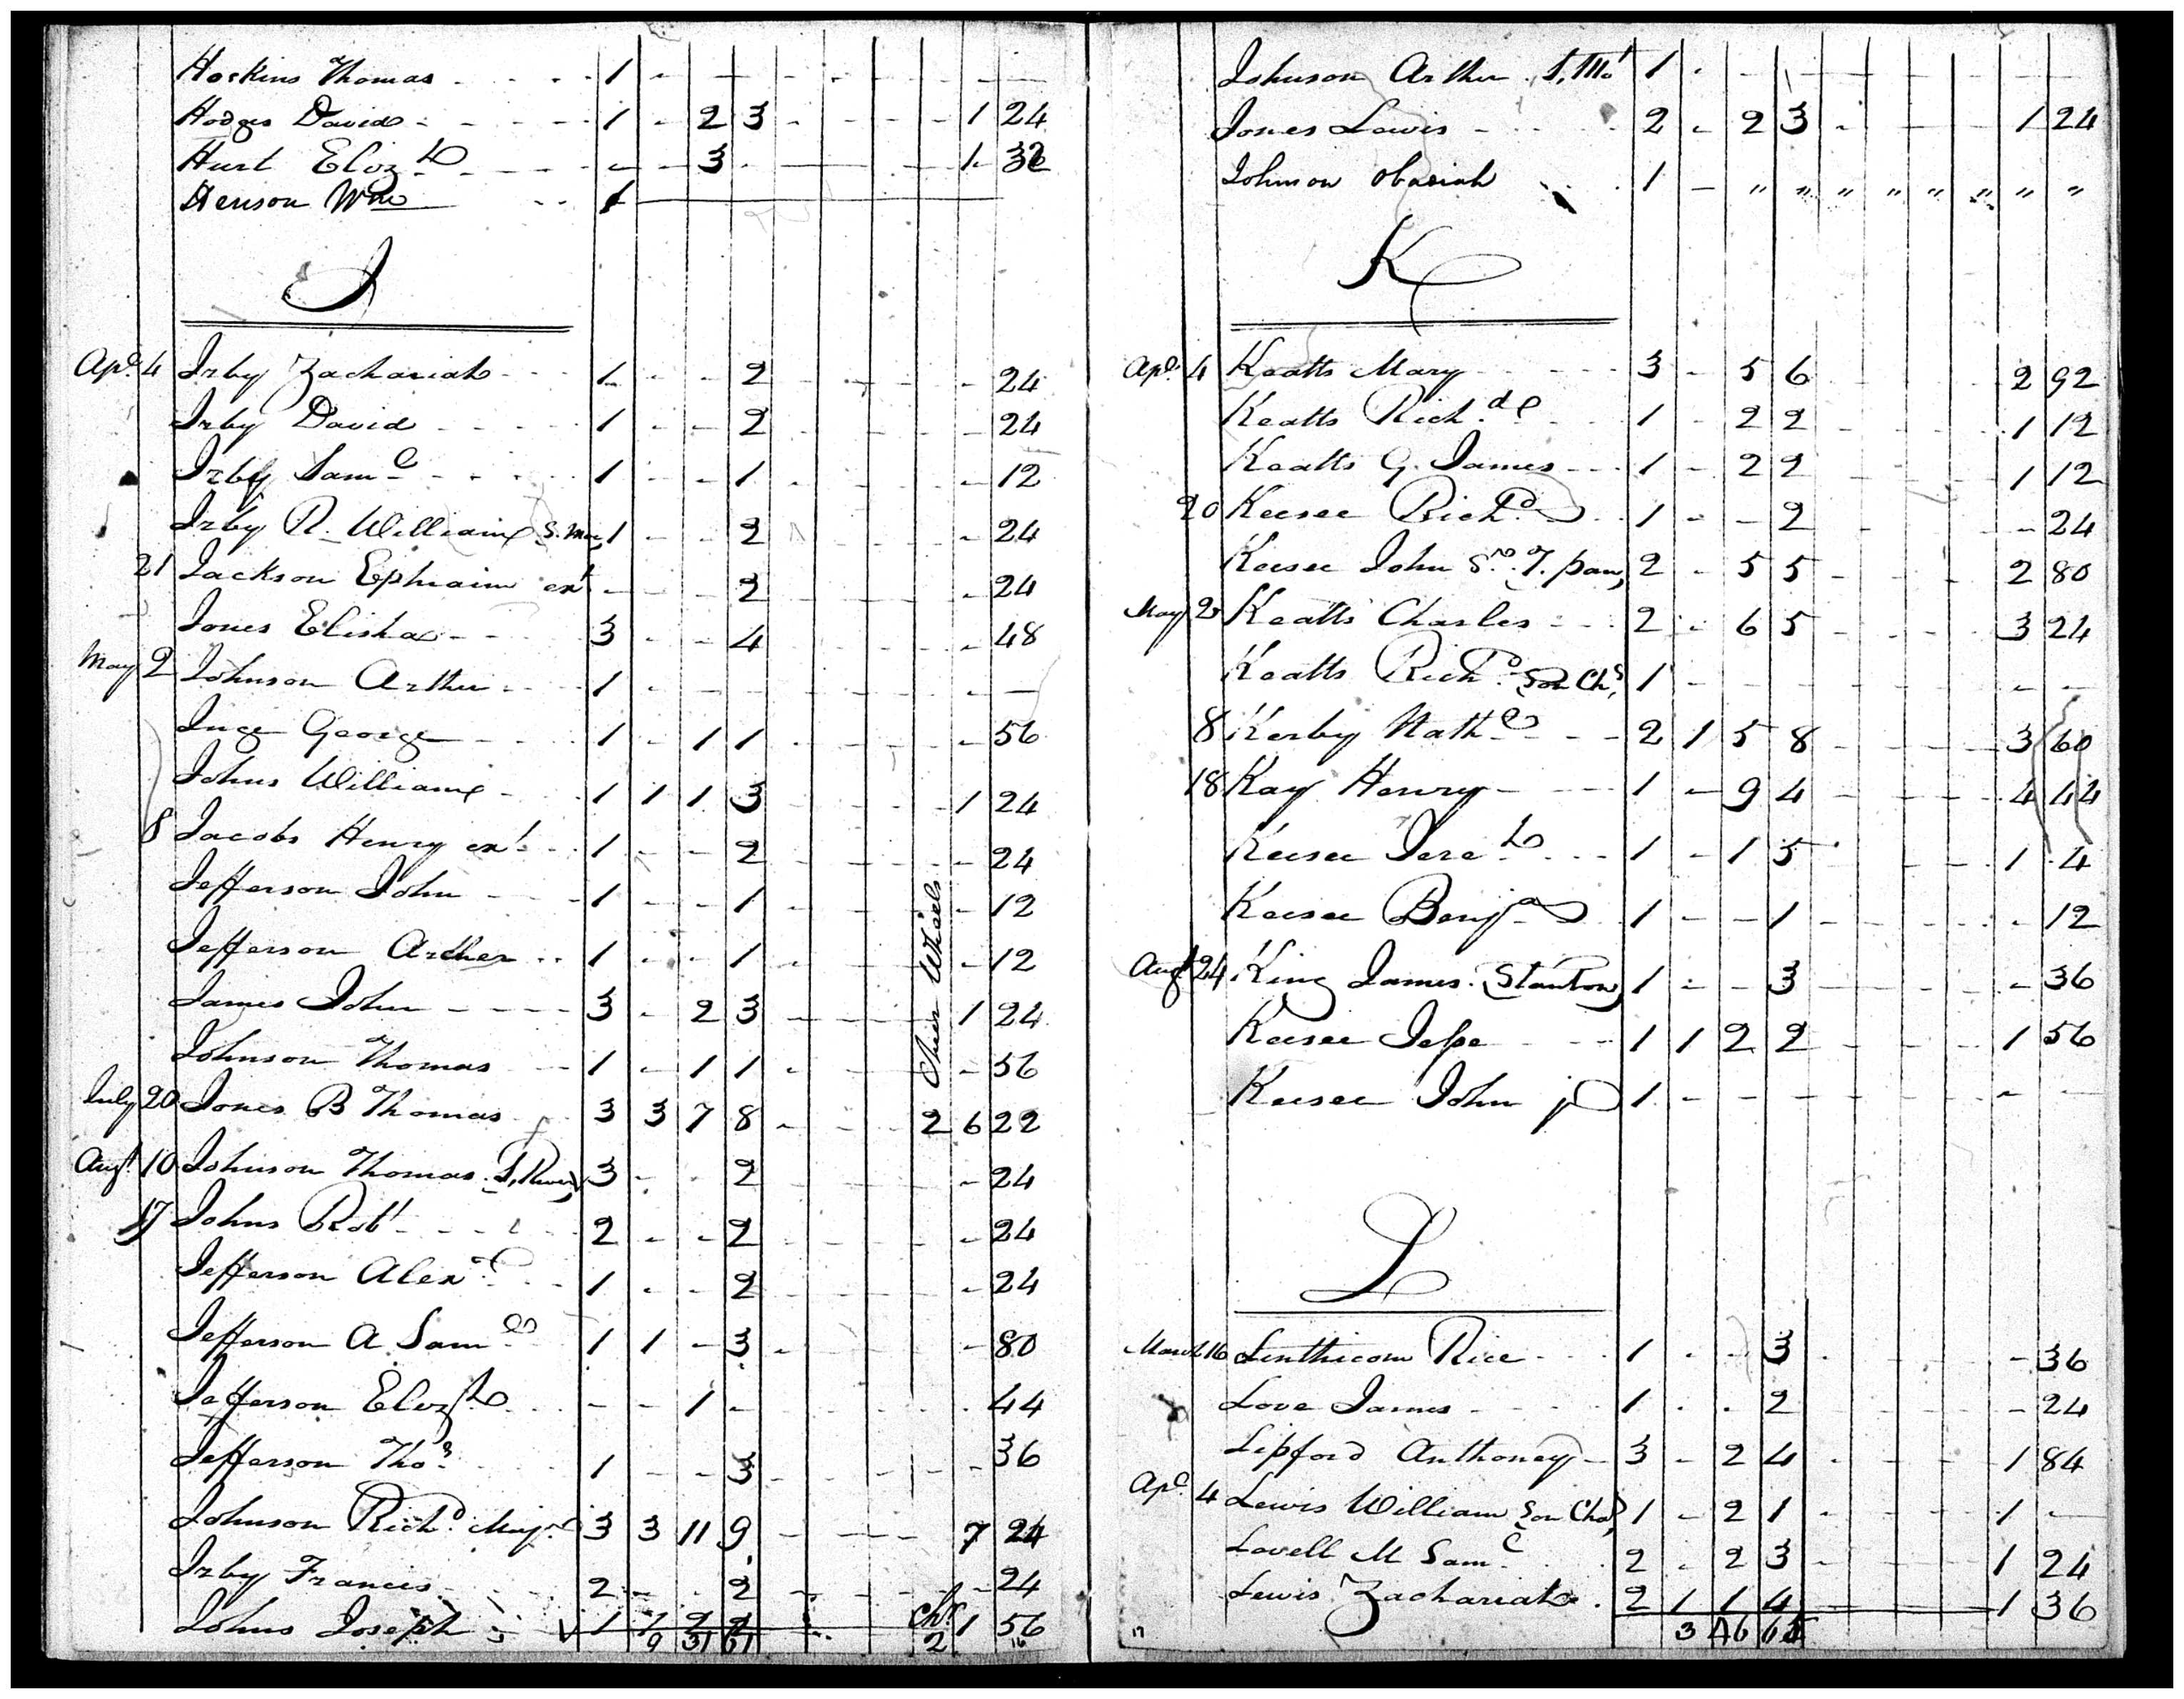 Hoskins Thomas - - - - 1 - - - - - - - -
Hodges David - - - - 1 - 2 3 - - - - 1 24
Hurt Eliz.th - - - - - - 3 - - - 1 - 32
Henson Wm - - 1
I
Apl. 4 Irby Zachariah - - - 1 - - 2 - - - - 24
Irby David - - - - 1 - - 2 - - - - 24
Irby Saml - - - - 1 - - 1 - - - - 12
Irby R. William S. Mer. 1 - - 2 - - - 24
21 Jackson Ephraim ext - - - 2 - - - - 24
Jones Elisha - - - 3 - - 4 - - - - 48
May 2 Johnson Arthur - - 1 - - - - - - - -
Inge George - - - 1 - 1 1 - - - - 56
Johns William - - 1 1 1 3 - - - - 1 24
8 Jacobs Henry ext - - 1 - - 2 - - - - 24
Jefferson John - - - 1 - - 1 - - - - 12
Jefferson Archer - - 1 - - 1 - - - - 12
James John - - - - 3 - 2 3 - - - - 1 24
Johnson Thomas - - 1 - 1 1 - - - - 56
Chier Wheels
July 20 Jones B Thomas 3 3 7 8 - - - 2 6 22
Augt. 10 Johnson Thomas S. River 3 - - 2 - - - - 24
17 Johns Robt - - - - 2 - - 2 - - - - 24
Jefferson Alexr - - 1 - - 2 - - - - 24
Jefferson A Saml 1 1 - 3 - - - - 80
Jefferson Eliz.th - - - - 1 - - - - - 44
Jefferson Thos. 1 - - 3 - - - - 36
Johnson Richd. Majr 3 3 11 9 - - - - 7 24
Irby Francis - - - 2 - - 2 - - - - 24
Johns Joseph 1 1 2 2 - - Chr 1 56
9 31 61 2 16
Johnson Arthur S. Mo 1 - - - - - - - -
Jones Lewis - - - - 2 - 2 3 - - - - 1 24
Johnson Obadiah 1 - " " " " " " " "
K
Apl. 4 Keatts Mary - - - - 3 - 5 6 2 92
Keatts Richd - - 1 - 2 2 - - - - 1 12
Keatts G. James - - - 1 - 2 2 - - - - 1 12
20 Keesee Richd. 1 - - 2 - - - - 24
Keesee John Sr. T. pan, 2 - 5 5 - - - - 2 80
May 2 Keatts Charles - - - 2 - 6 5 - - - - 3 24
Keatts Richd. Son Chs, 1 - - - - - - - - -
8 Kerby Nathl - - - 2 1 5 8 - - - - 3 60
18 Kay Henry - - - - 1 - 9 4 - - - - 4 44
Keesee Jereh - - - 1 - 1 5 - - - - 1 4
Keesee Benja 1 - - 1 - - - - - 12
Augt 24 King James (Stanton) 1 - - 3 - - - - - 36
Keesee Jesse - - - 1 1 2 2 - - - - 1 56
Keesee John jr 1 - - - - - - - - -
L
March 16 Linthicom Rice - - - 1 - - 3 - - - - - 36
Love James - - - - 1 - - 2 - - - - - 24
Lipford Anthoney - 3 - 2 4 - - - - 1 84
Apl. 4 Lewis William Son Chas, 1 - 2 1 - - - - 1 -
Lovell M Saml - - 2 - 2 3 - - - - 1 24
Lewis Zachariah - 2 1 1 4 - - - - 1 36
17 3 46 65